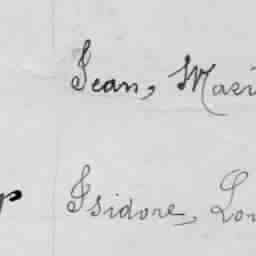 Jean, Mari
Isidore, Lou